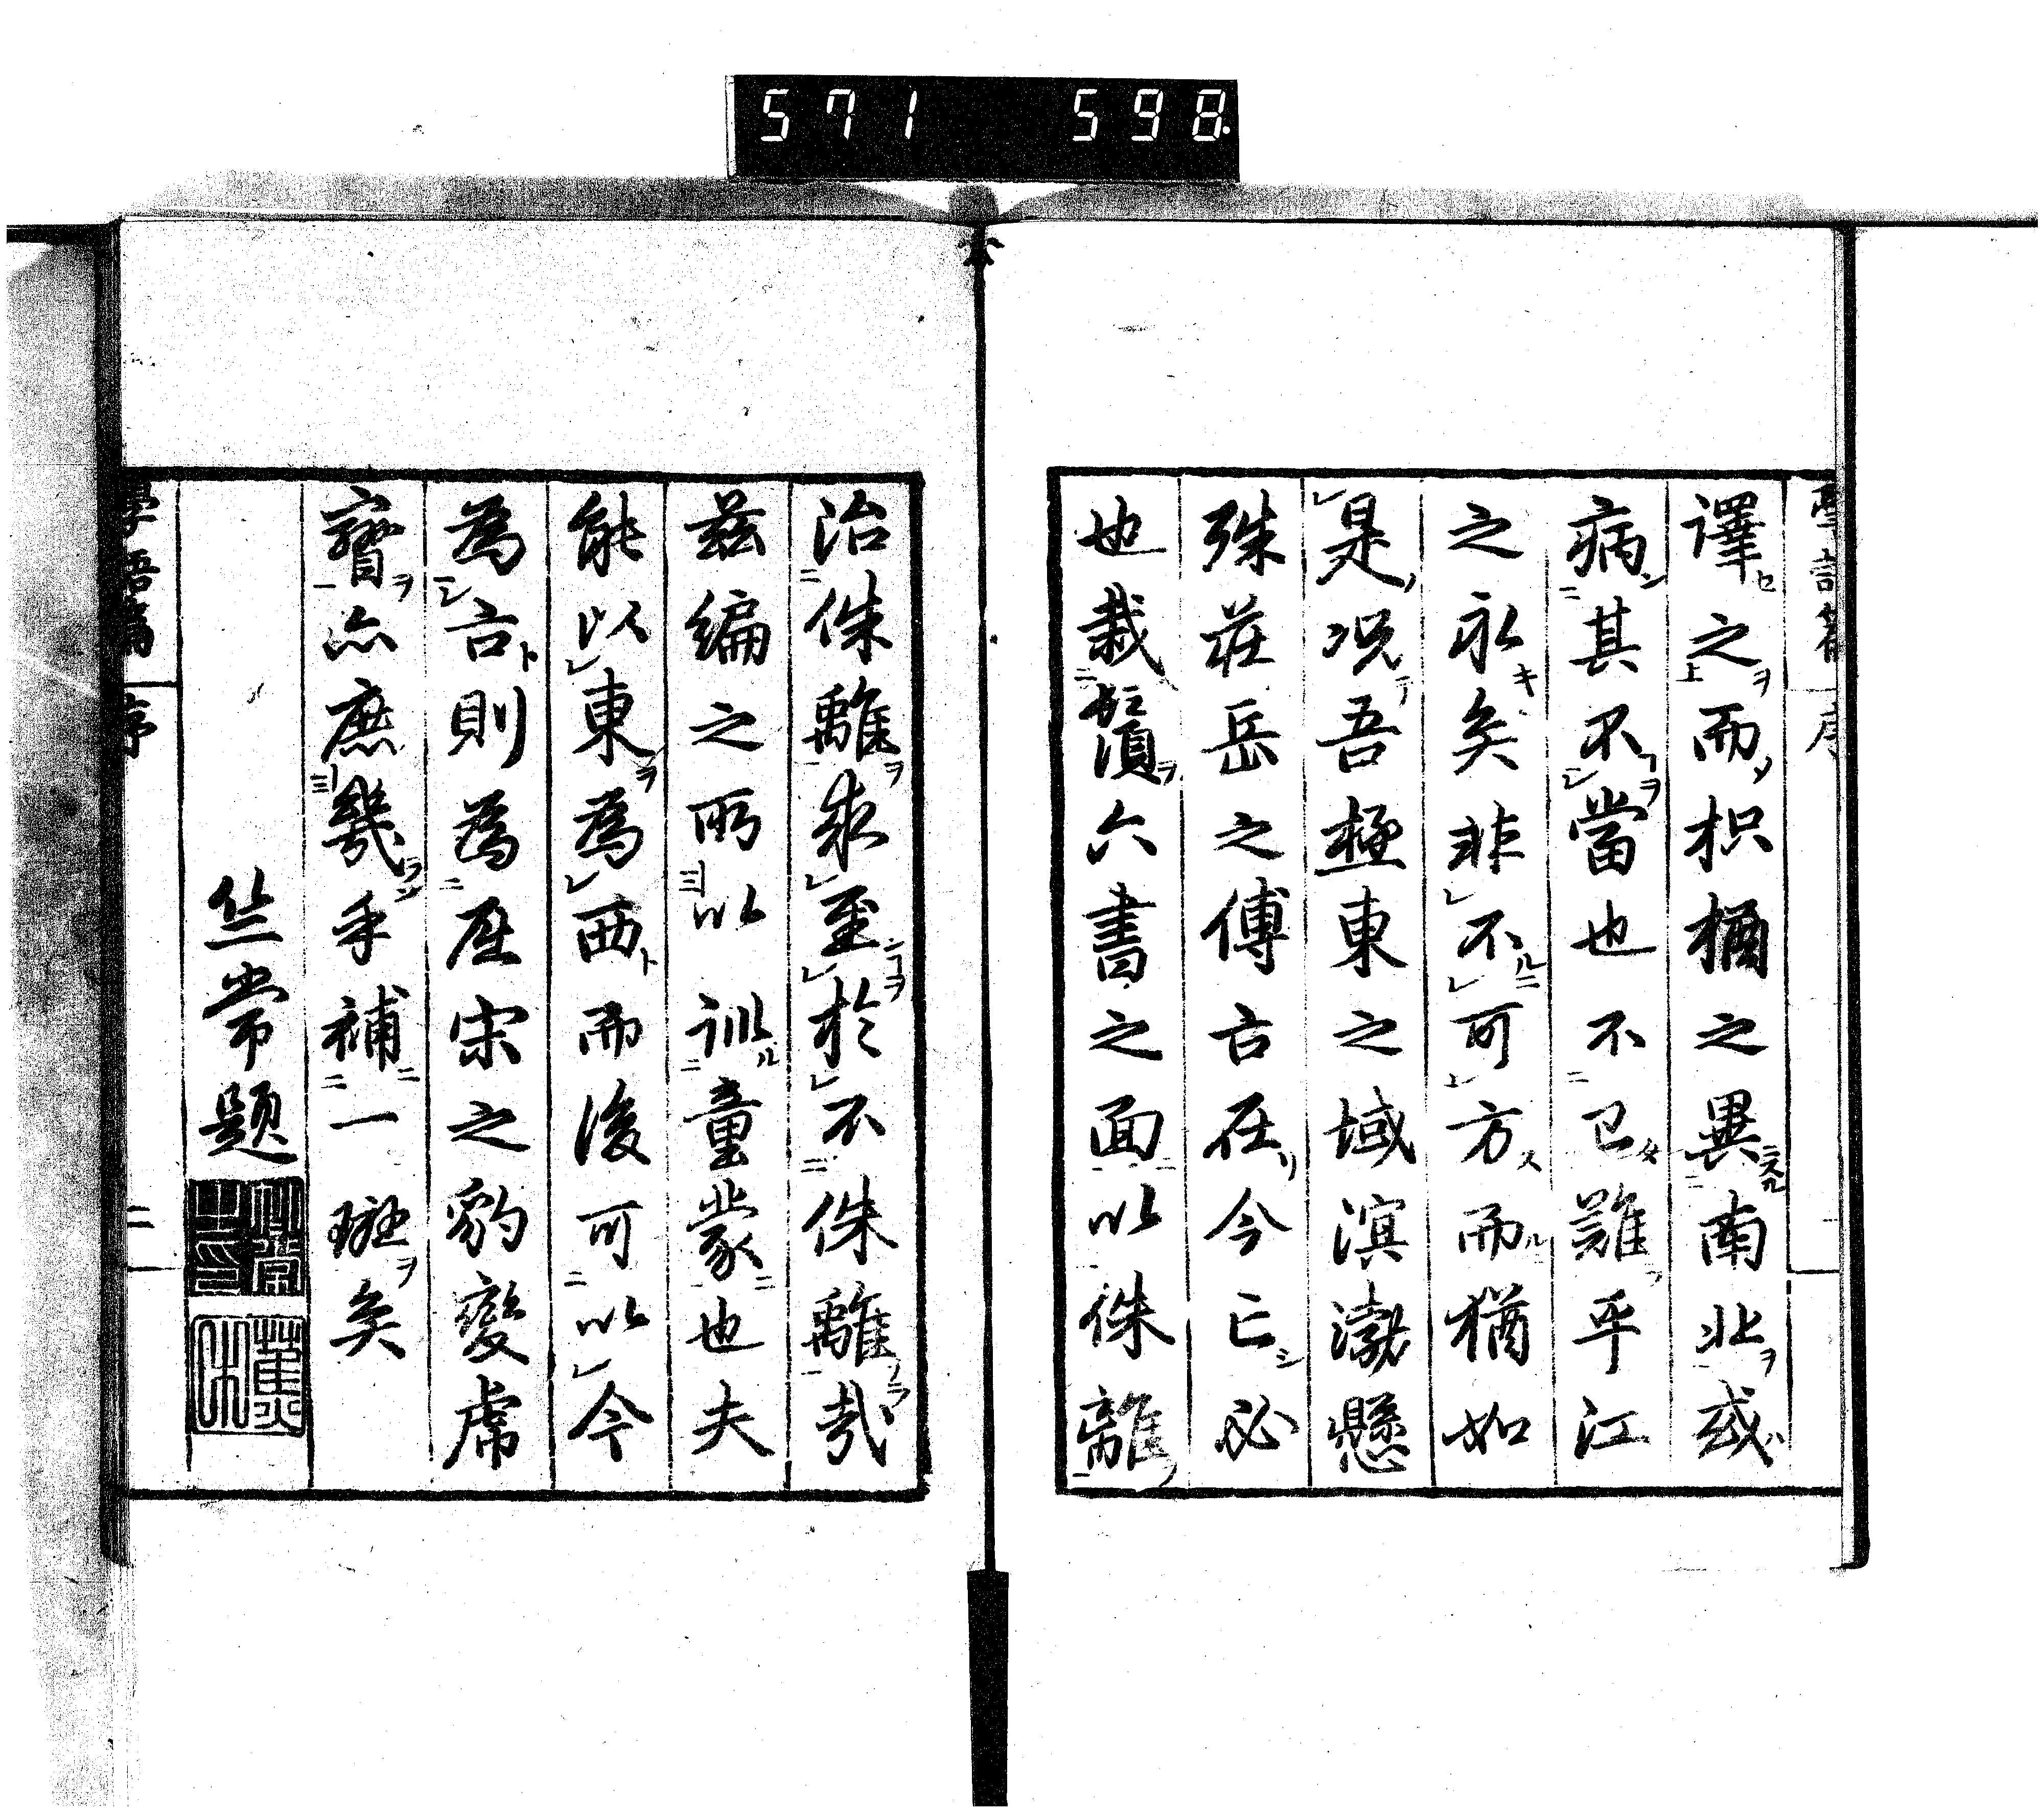 571 598
學語篇 序
譯之而枳橘之異南北或
病其不當也不已難乎江
之永矣非不可方而猶如
是況吾極東之域濱渤懸
殊莊岳之傅古在今亡必
也栽鬚六書之面以侏離
治侏離求至於不侏離哉
茲編之所以訓童蒙也夫
能以東為西而後可以今
為古則為唐宋之豹變虎
亦庶幾乎補一斑矣
竺常題
學語篇 序 二